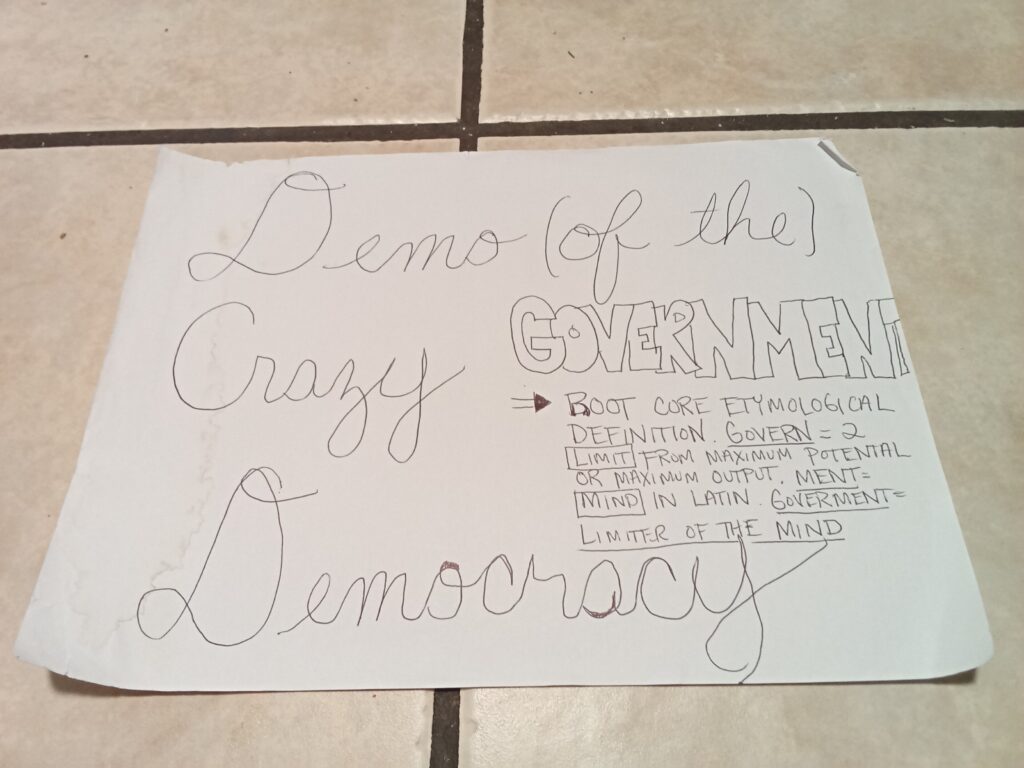 Demo (of the)
Crazy
GOVERNMENT
ROOT CORE ETYMOLOGICAL
DEFINITION. GOVERN = 2
LIMIT FROM MAXIMUM POTENTIAL
OR MAXIMUM OUTPUT. MENT=
MIND IN LATIN. GOVERMENT=
LIMITER OF THE MIND
Democracy